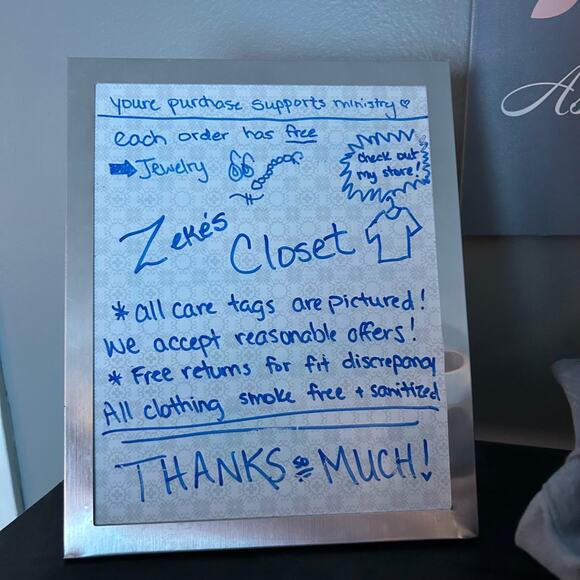 youre purchase supports ministry ♡
each order has free
➡Jewelry
check out
my store!
Zeke's Closet
* all care tags are pictured!
We accept reasonable offers!
* Free returns for fit discrepancy
All clothing smoke free + sanitized
THANKS so MUCH!
As